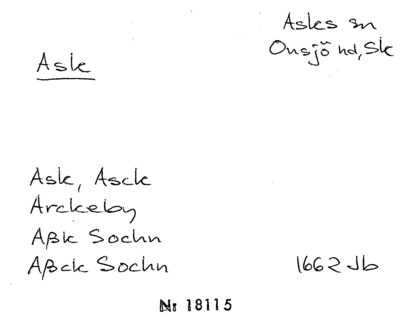 Asks sn
Onsjö hd, Sk
Ask
Ask, Asck
Arckeby
Aβk Sochn
Aβck Sochn 1662 Jb
Nr 18115